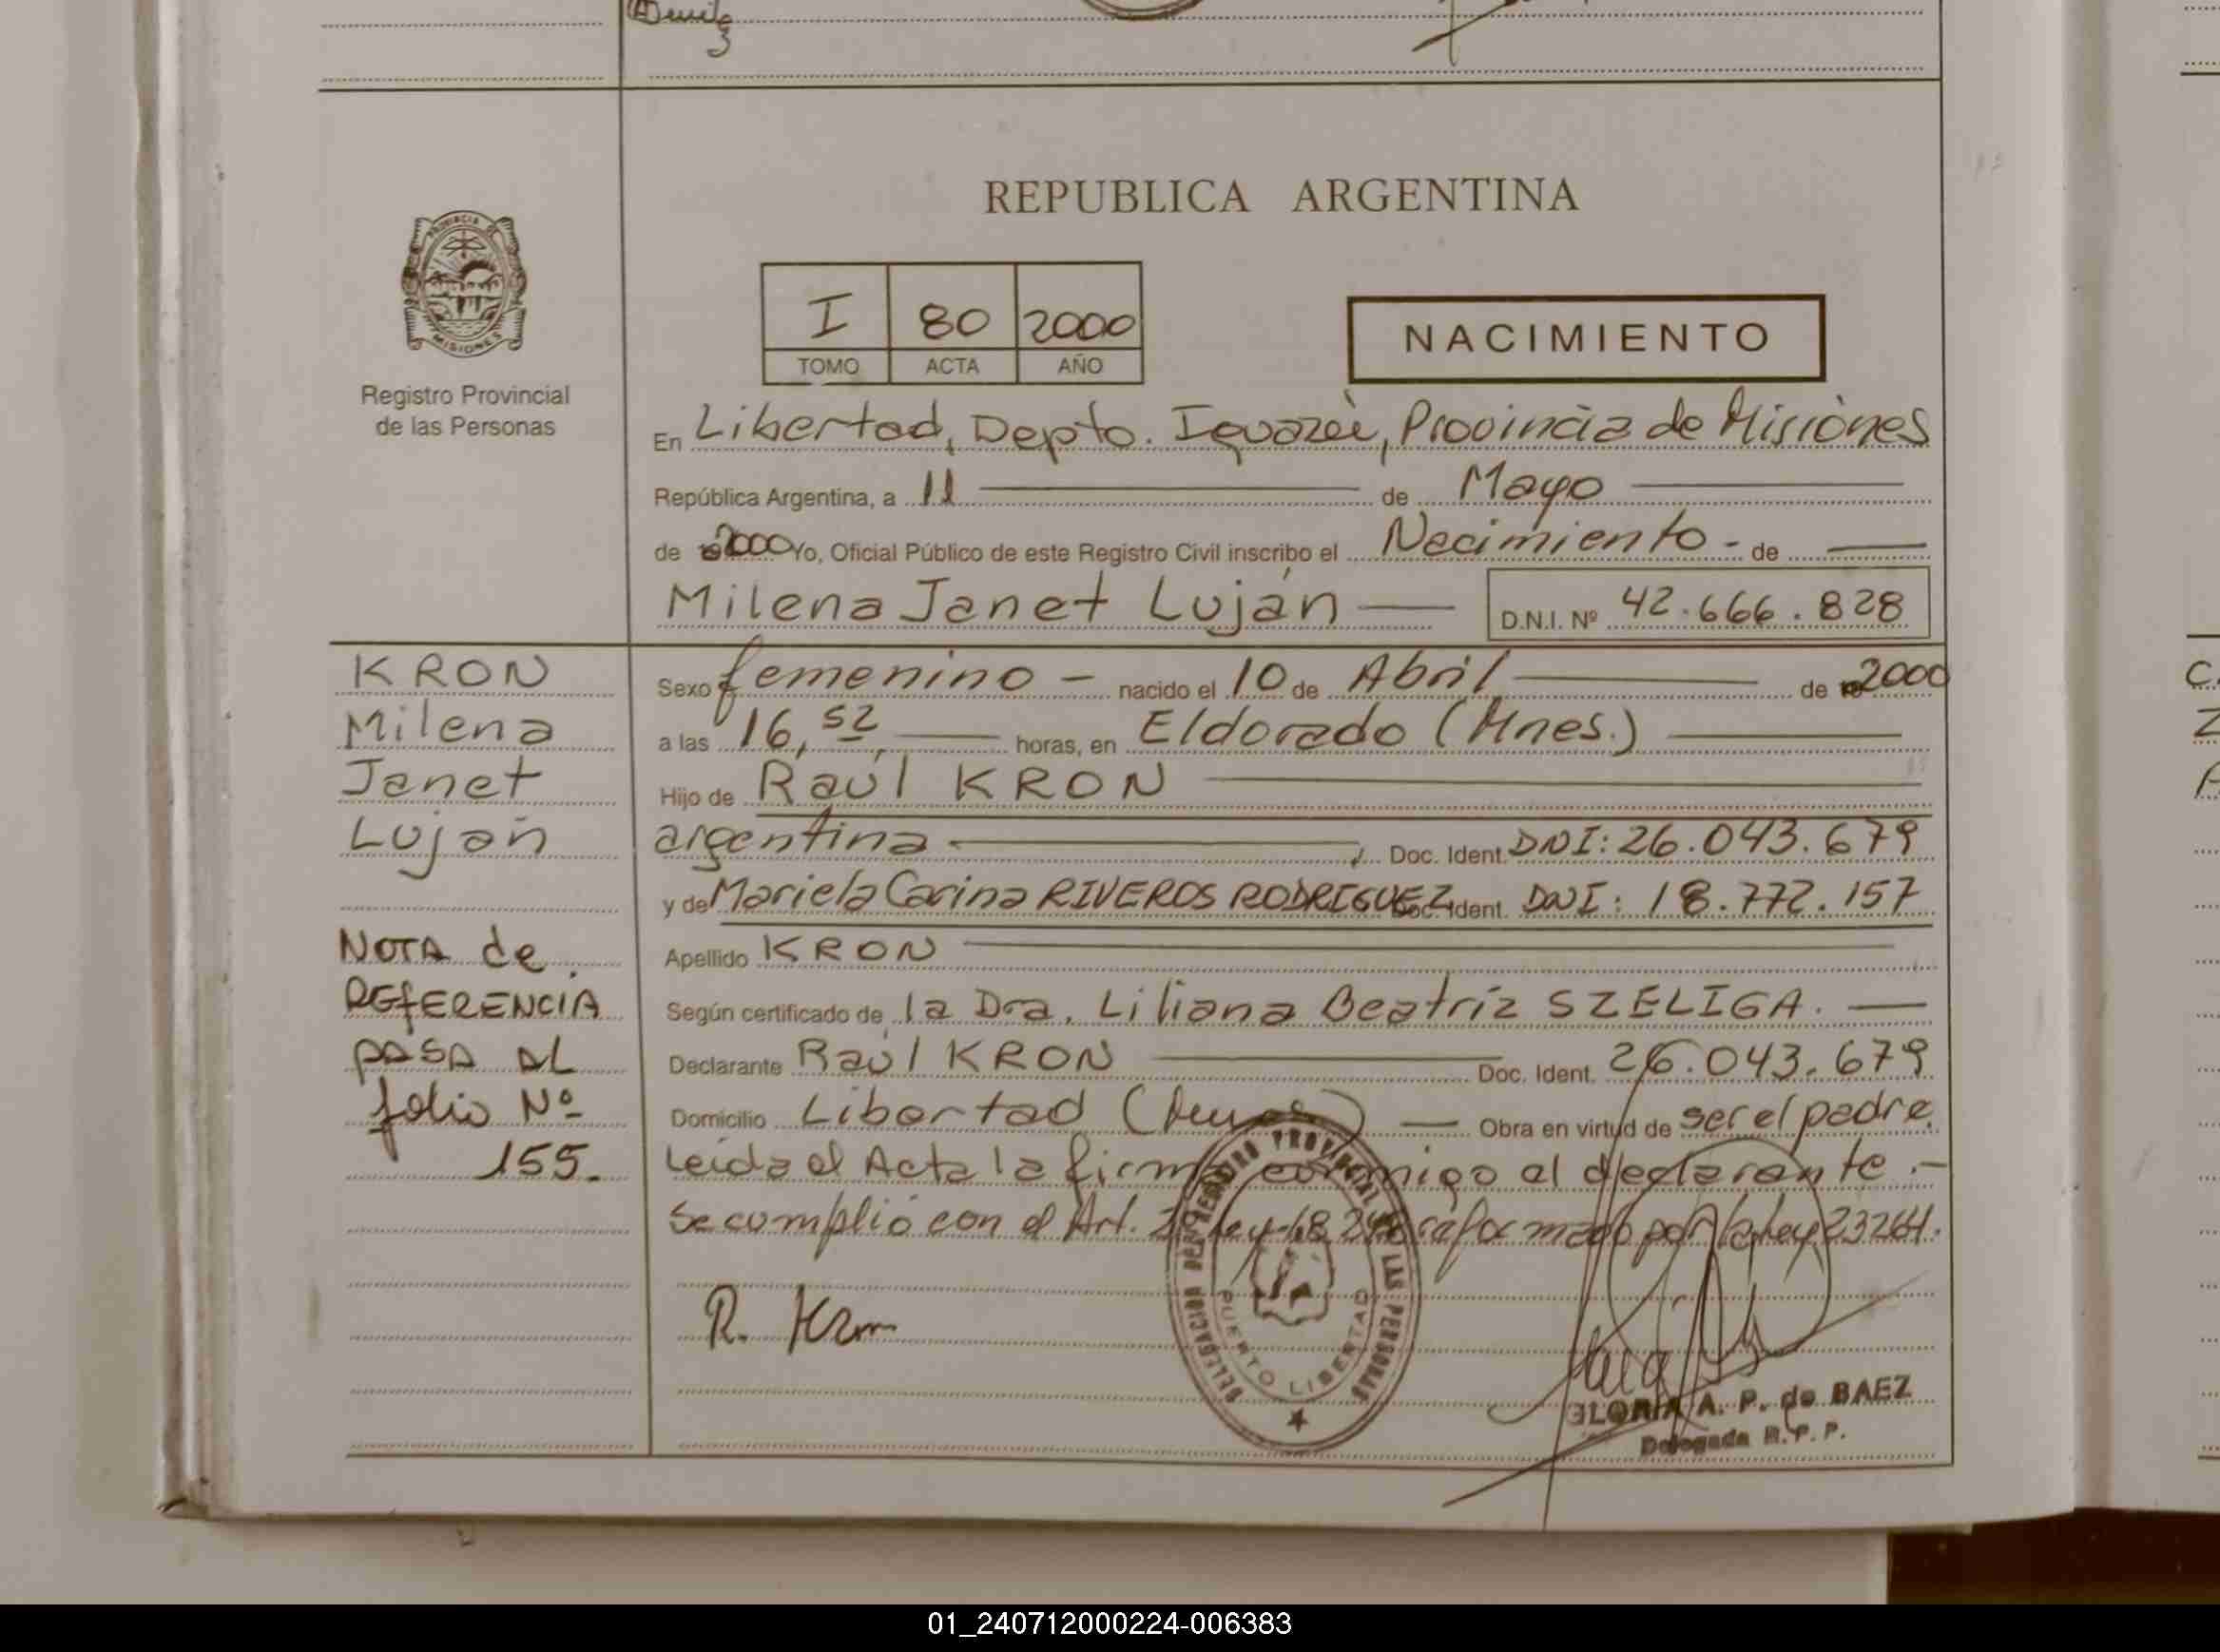 REPUBLICA ARGENTINA
PROVINCIA DE MISIONES
Registro Provincial
de las Personas
I 80 2000
TOMO ACTA AÑO
NACIMIENTO
En Libertad, Depto. Iguazú, Provincia de Misiones
República Argentina, a 11 de Mayo
de 2000 Yo, Oficial Público de este Registro Civil inscribo el Nacimiento - de
Milena Janet Luján
D.N.I. Nº 42.666.828
KRON
Milena
Janet
Luján
NOTA de
REFERENCIA
PASA AL
folio Nº
155.
Sexo femenino - nacido el 10 de Abril de 2000
a las 16,52 horas, en Eldorado (Mnes.)
Hijo de Raúl KRON
argentina Doc. Ident. DNI: 26.043.679
y de Mariela Carina RIVEROS RODRIGUEZ Doc. Ident. DNI: 18.772.157
Apellido KRON
Según certificado de la Dra. Liliana Beatríz SZELIGA.
Declarante Raúl KRON Doc. Ident. 26.043.679
Domicilio Libertad Obra en virtud de ser el padre.
Leida el Acta la firma conmigo el declarante.-
Se cumplió con el Art. Ley 18.248 reformado por la Ley 23264.
R. Kron
DELEGACION DEL REGISTRO PROVINCIAL DE LAS PERSONAS
PUERTO LIBERTAD
GLORIA A. P. de BAEZ
Delegada R. P. P.
01_240712000224-006383